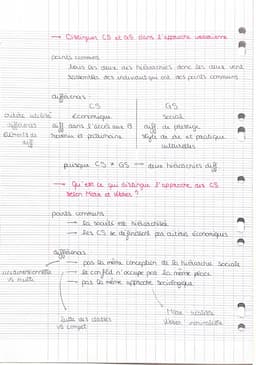 → Distinguer CS et GS dans l'approche weberienne
points communs :
tous les deux des hiérarchies donc les deux vont
rassembler des individus qui ont des points communs
différences :
CS GS
critère utilisé économique social
différences diff dans l'accès aux B diff de prestige
éléments de revenus et patrimoine style de vie et pratique
diff culturelles
puisque CS ≠ GS → deux hiérarchies diff
→ Qu'est ce qui distingue l'approche des CS
selon Marx et Weber ?
points communs :
→ la société est hiérarchisée
→ les CS se définissent par critères économiques
différences
→ pas la même conception de la hiérarchie sociale
unidimensionnelle → le conflit n'occupe pas la même place
vs multi → pas la même approche sociologique
lutte des classes Marx réaliste
vs compet Weber nominaliste